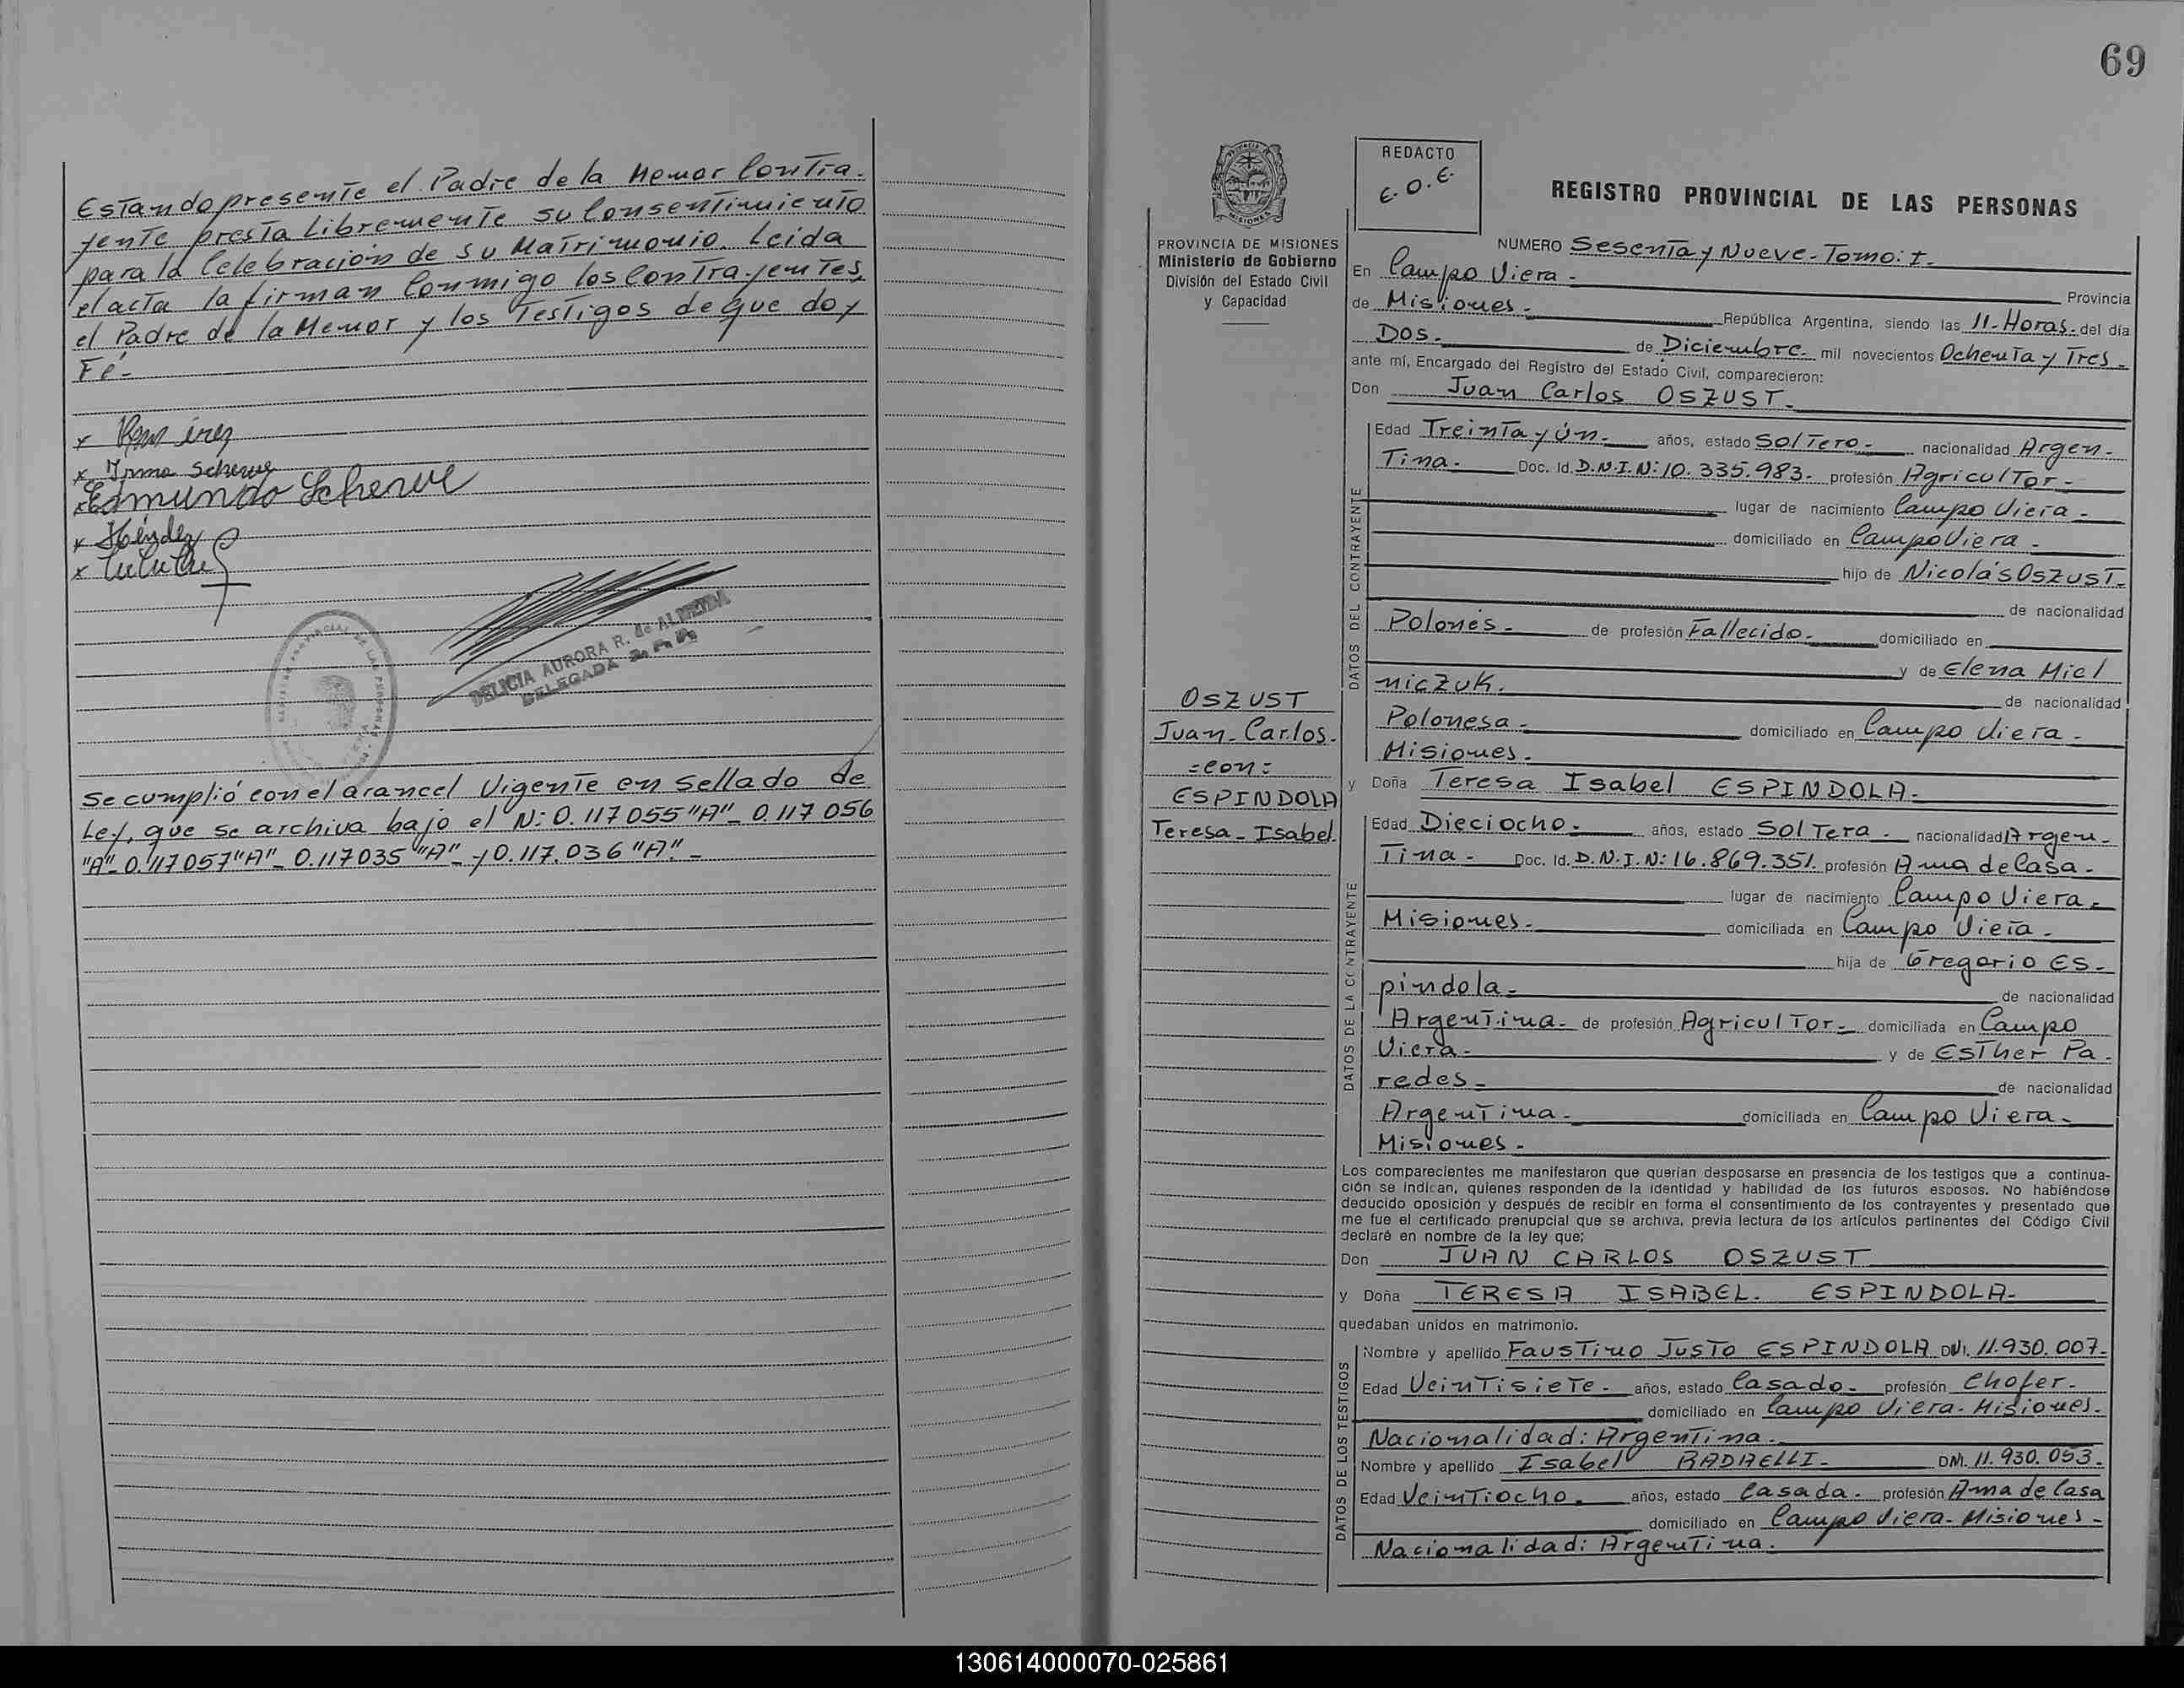 Estando presente el Padre de la Menor Contra-
yente presta libremente su Consentimiento
para la Celebración de su Matrimonio. Leida
el acta la firman Conmigo los Contra-yentes,
el Padre de la Menor y los Testigos de que doy
Fé-
x Ramírez
x Irma Scherve
x Edmundo Scherve
x Méndez
x
DELICIA AURORA R. de ALMEIDA
DELEGADA
Se cumplió con el arancel Vigente en sellado de
Ley, que se archiva bajo el N: 0.117055 "A"- 0.117056
"A"- 0.117057 "A"- 0.117035 "A"- y 0.117.036 "A".-
69
REDACTO
E.O.E.
REGISTRO PROVINCIAL DE LAS PERSONAS
MISIONES
PROVINCIA DE MISIONES
Ministerio de Gobierno
División del Estado Civil
y Capacidad
OSZUST
Juan-Carlos.
=con=
ESPINDOLA
Teresa-Isabel.
NUMERO Sesenta y Nueve-Tomo: I.
En Campo Viera- Provincia
de Misiones.- República Argentina, siendo las 11-Horas-del día
Dos.- de Diciembre- mil novecientos Ochenta y Tres-
ante mí, Encargado del Registro del Estado Civil, comparecieron:
Don Juan Carlos OSZUST.-
DATOS DEL CONTRAYENTE
Edad Treinta y ún.- años, estado Soltero- nacionalidad Argen-
Tina.- Doc. Id. D.N.I.N: 10.335.983- profesión Agricultor-
lugar de nacimiento Campo Viera-
domiciliado en Campo Viera-
hijo de Nicolás Oszust.
de nacionalidad
Polonés- de profesión Fallecido.- domiciliado en
y de Elena Miel
niczuk.
de nacionalidad
Polonesa- domiciliado en Campo Viera-
Misiones.
y Doña Teresa Isabel ESPINDOLA-
DATOS DE LA CONTRAYENTE
Edad Dieciocho- años, estado Soltera- nacionalidad Argen-
Tina- Doc. Id. D.N.I.N: 16.869.351. profesión Ama de Casa-
lugar de nacimiento Campo Viera-
Misiones.- domiciliada en Campo Viera-
hija de Gregorio Es-
pindola- de nacionalidad
Argentina- de profesión Agricultor- domiciliada en Campo
Viera- y de Esther Pa-
redes- de nacionalidad
Argentina- domiciliada en Campo Viera-
Misiones-
Los comparecientes me manifestaron que querían desposarse en presencia de los testigos que a continua-
ción se indican, quienes responden de la identidad y habilidad de los futuros esposos. No habiéndose
deducido oposición y después de recibir en forma el consentimiento de los contrayentes y presentado que
me fue el certificado prenupcial que se archiva, previa lectura de los artículos pertinentes del Código Civil
declaré en nombre de la ley que;
Don JUAN CARLOS OSZUST
y Doña TERESA ISABEL. ESPINDOLA-
quedaban unidos en matrimonio.
DATOS DE LOS TESTIGOS
Nombre y apellido Faustino Justo ESPINDOLA DNI. 11.930.007-
Edad Veintisiete- años, estado Casado- profesión Chofer-
domiciliado en Campo Viera-Misiones-
Nacionalidad: Argentina-
Nombre y apellido Isabel RADAELLI- DNI. 11.930.053-
Edad Veintiocho. años, estado Casada- profesión Ama de Casa
domiciliado en Campo Viera-Misiones-
Nacionalidad: Argentina.
130614000070-025861